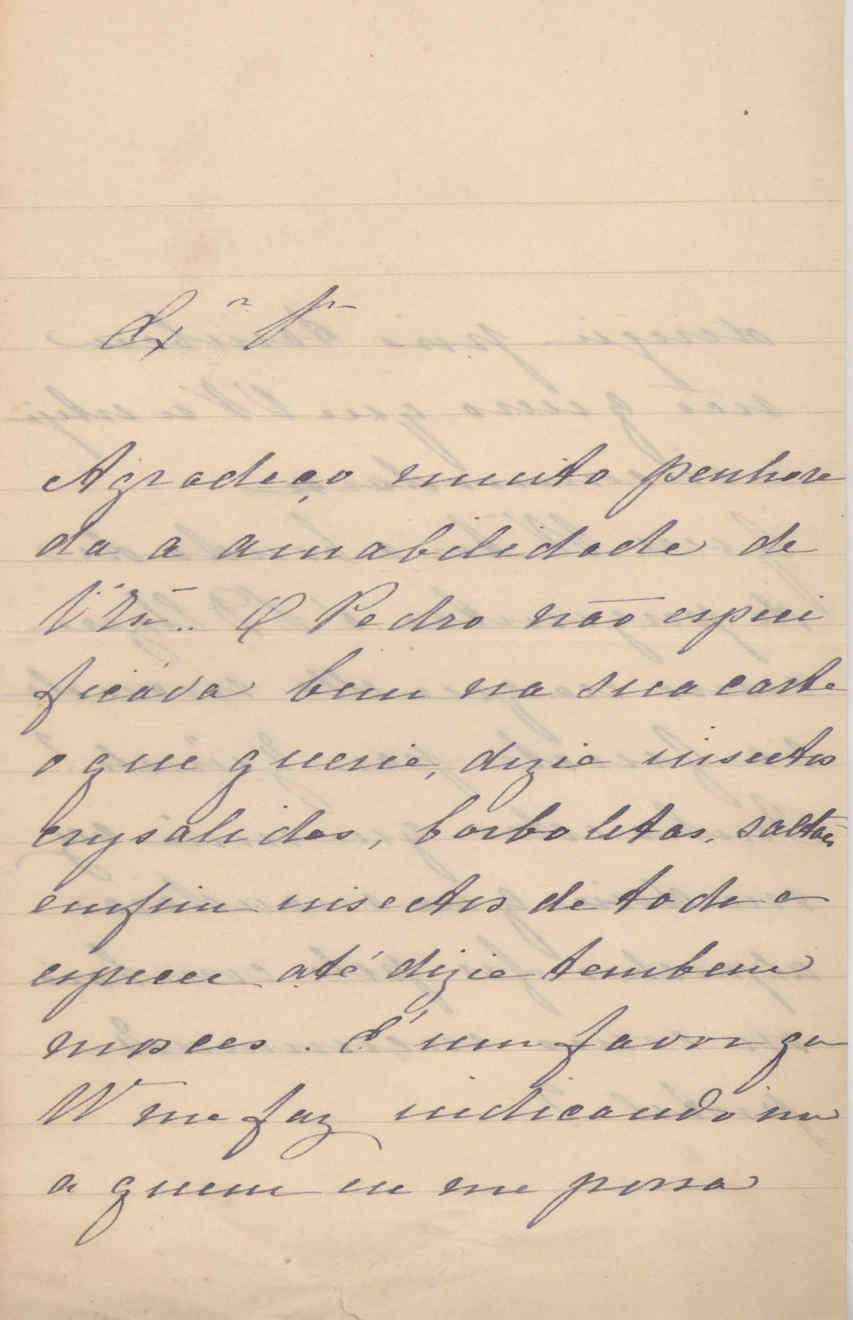 Ex.ᵐᵒ Sr
Agradeço muito penhora
da a amabilidade de
V. Exª.. O Pedro não especi
ficava bem na sua carta
o que queria, dizia insectos
crysalidas, borboletas, saltões
emfim insectos de toda a
especie até dizia tambem
moscas. É um favor que
VExª me faz indicando me
a quem eu me possa